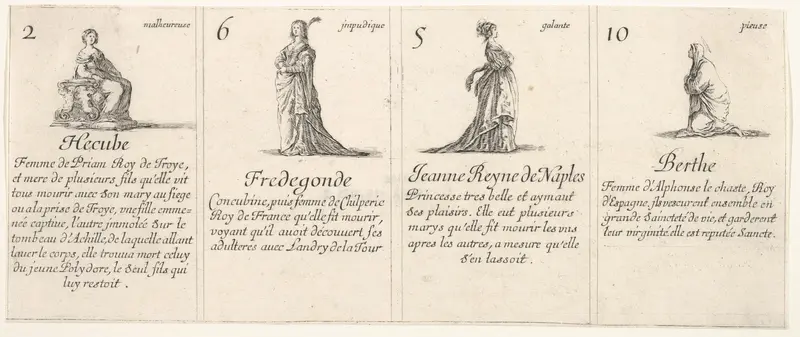 2
malheureuse
Hecube
Femme de Priam Roy de Troye,
et mere de plusieurs fils qu'elle vit
tous mourir auec son mary au siege
ou a la prise de Troye, vne fille emme-
née captiue, l'autre immolée sur le
tombeau d'Achille, de laquelle allant
lauer le corps, elle trouua mort celuy
du jeune Polydore, le seul fils qui
luy restoit.
6
jmpudique
Fredegonde
Concubine, puis femme de Chilperic
Roy de France qu'elle fit mourir,
voyant qu'il auoit découuert ses
adulteres auec Landry de la Tour
5
galante
Jeanne Reyne de Naples
Princesse tres belle et aymant
ses plaisirs. Elle eut plusieurs
marys qu'elle fit mourir les vns
apres les autres, a mesure qu'elle
s'en lassoit.
10
pieuse
Berthe
Femme d'Alphonse le chaste, Roy
d'Espagne, ils vescurent ensemble en
grande Saincteté de vie, et garderent
leur virginité. elle est reputée Saincte.